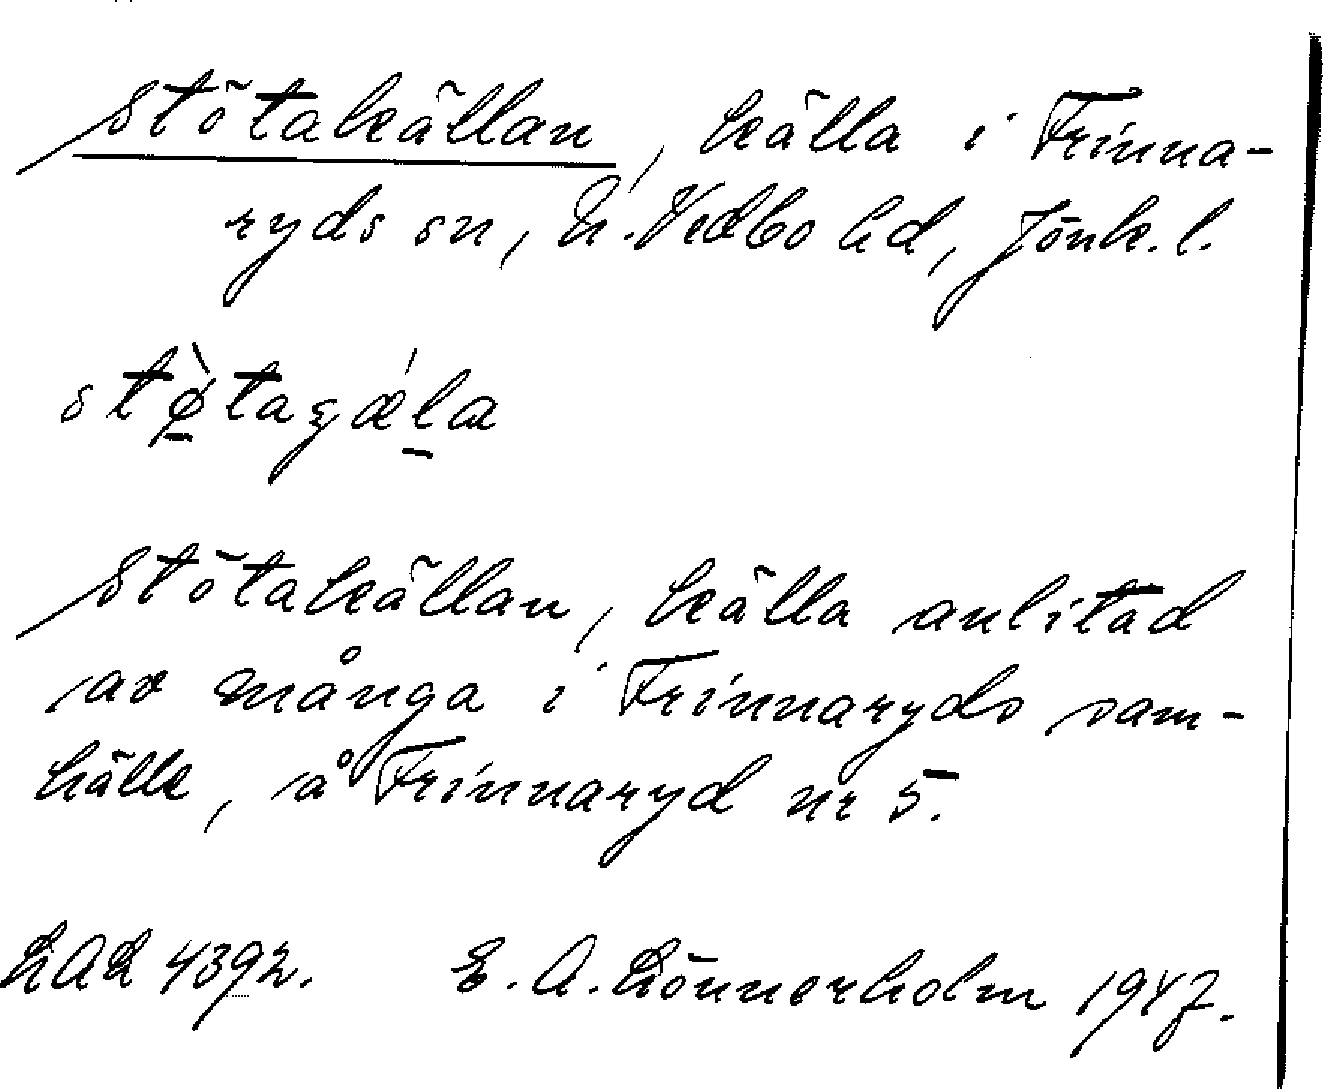 Stötakällan, källa i Frinna-
ryds sn, N. Vedbo hd, Jönk. l.
Stötakällan, källa anlitad
av många i Frinnaryds sam-
hälle, å Frinnaryd nr 5.
4392. E. A. Lönnerholm 1947.